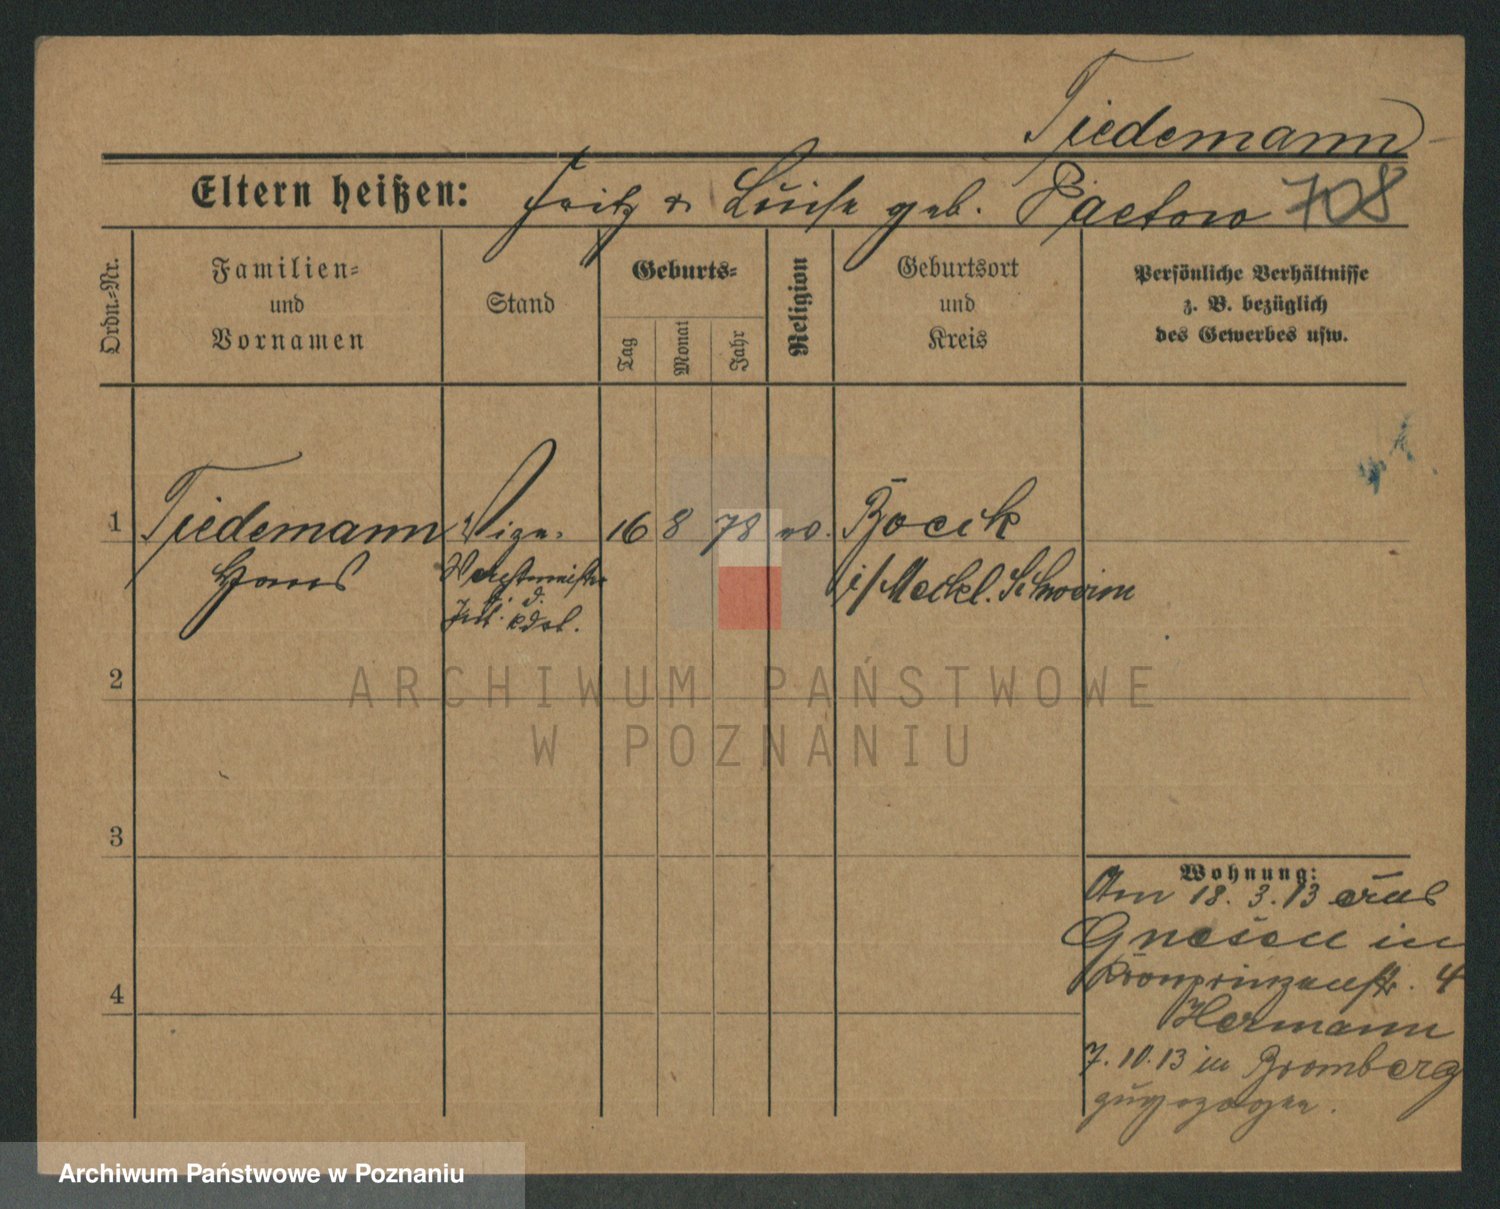 Tiedemann
Eltern heißen: Fritz & Luise geb. Pactow 708
Ordn.-Nr.
Familien-
und
Vornamen
Stand
Geburts-
Tag
Monat
Jahr
Religion
Geburtsort
und
Kreis
Persönliche Verhältnisse
z. B. bezüglich
des Gewerbes usw.
1 Tiedemann 16 8 78 ev. Boeck
Hans i/Meckl. Schwerin
2
3
4
Wohnung:
Am 18. 3. 13 aus
Gnesen in
Kronprinzenstr. 4
Hermann
7. 10. 13 in Bromberg
zugezogen.
ARCHIWUM PAŃSTWOWE
W POZNANIU
Archiwum Państwowe w Poznaniu